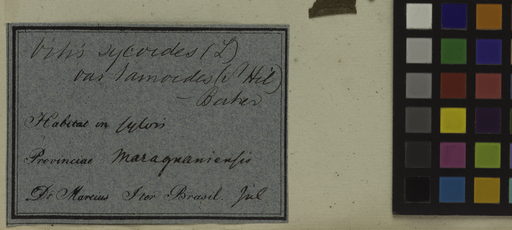 Vitis sycoides (L)
var tamoides (St Hil)
— Baker
Habitat in sylvis
Provinciae Maragnaniensis
Dr Martius Iter Brasil. Jul